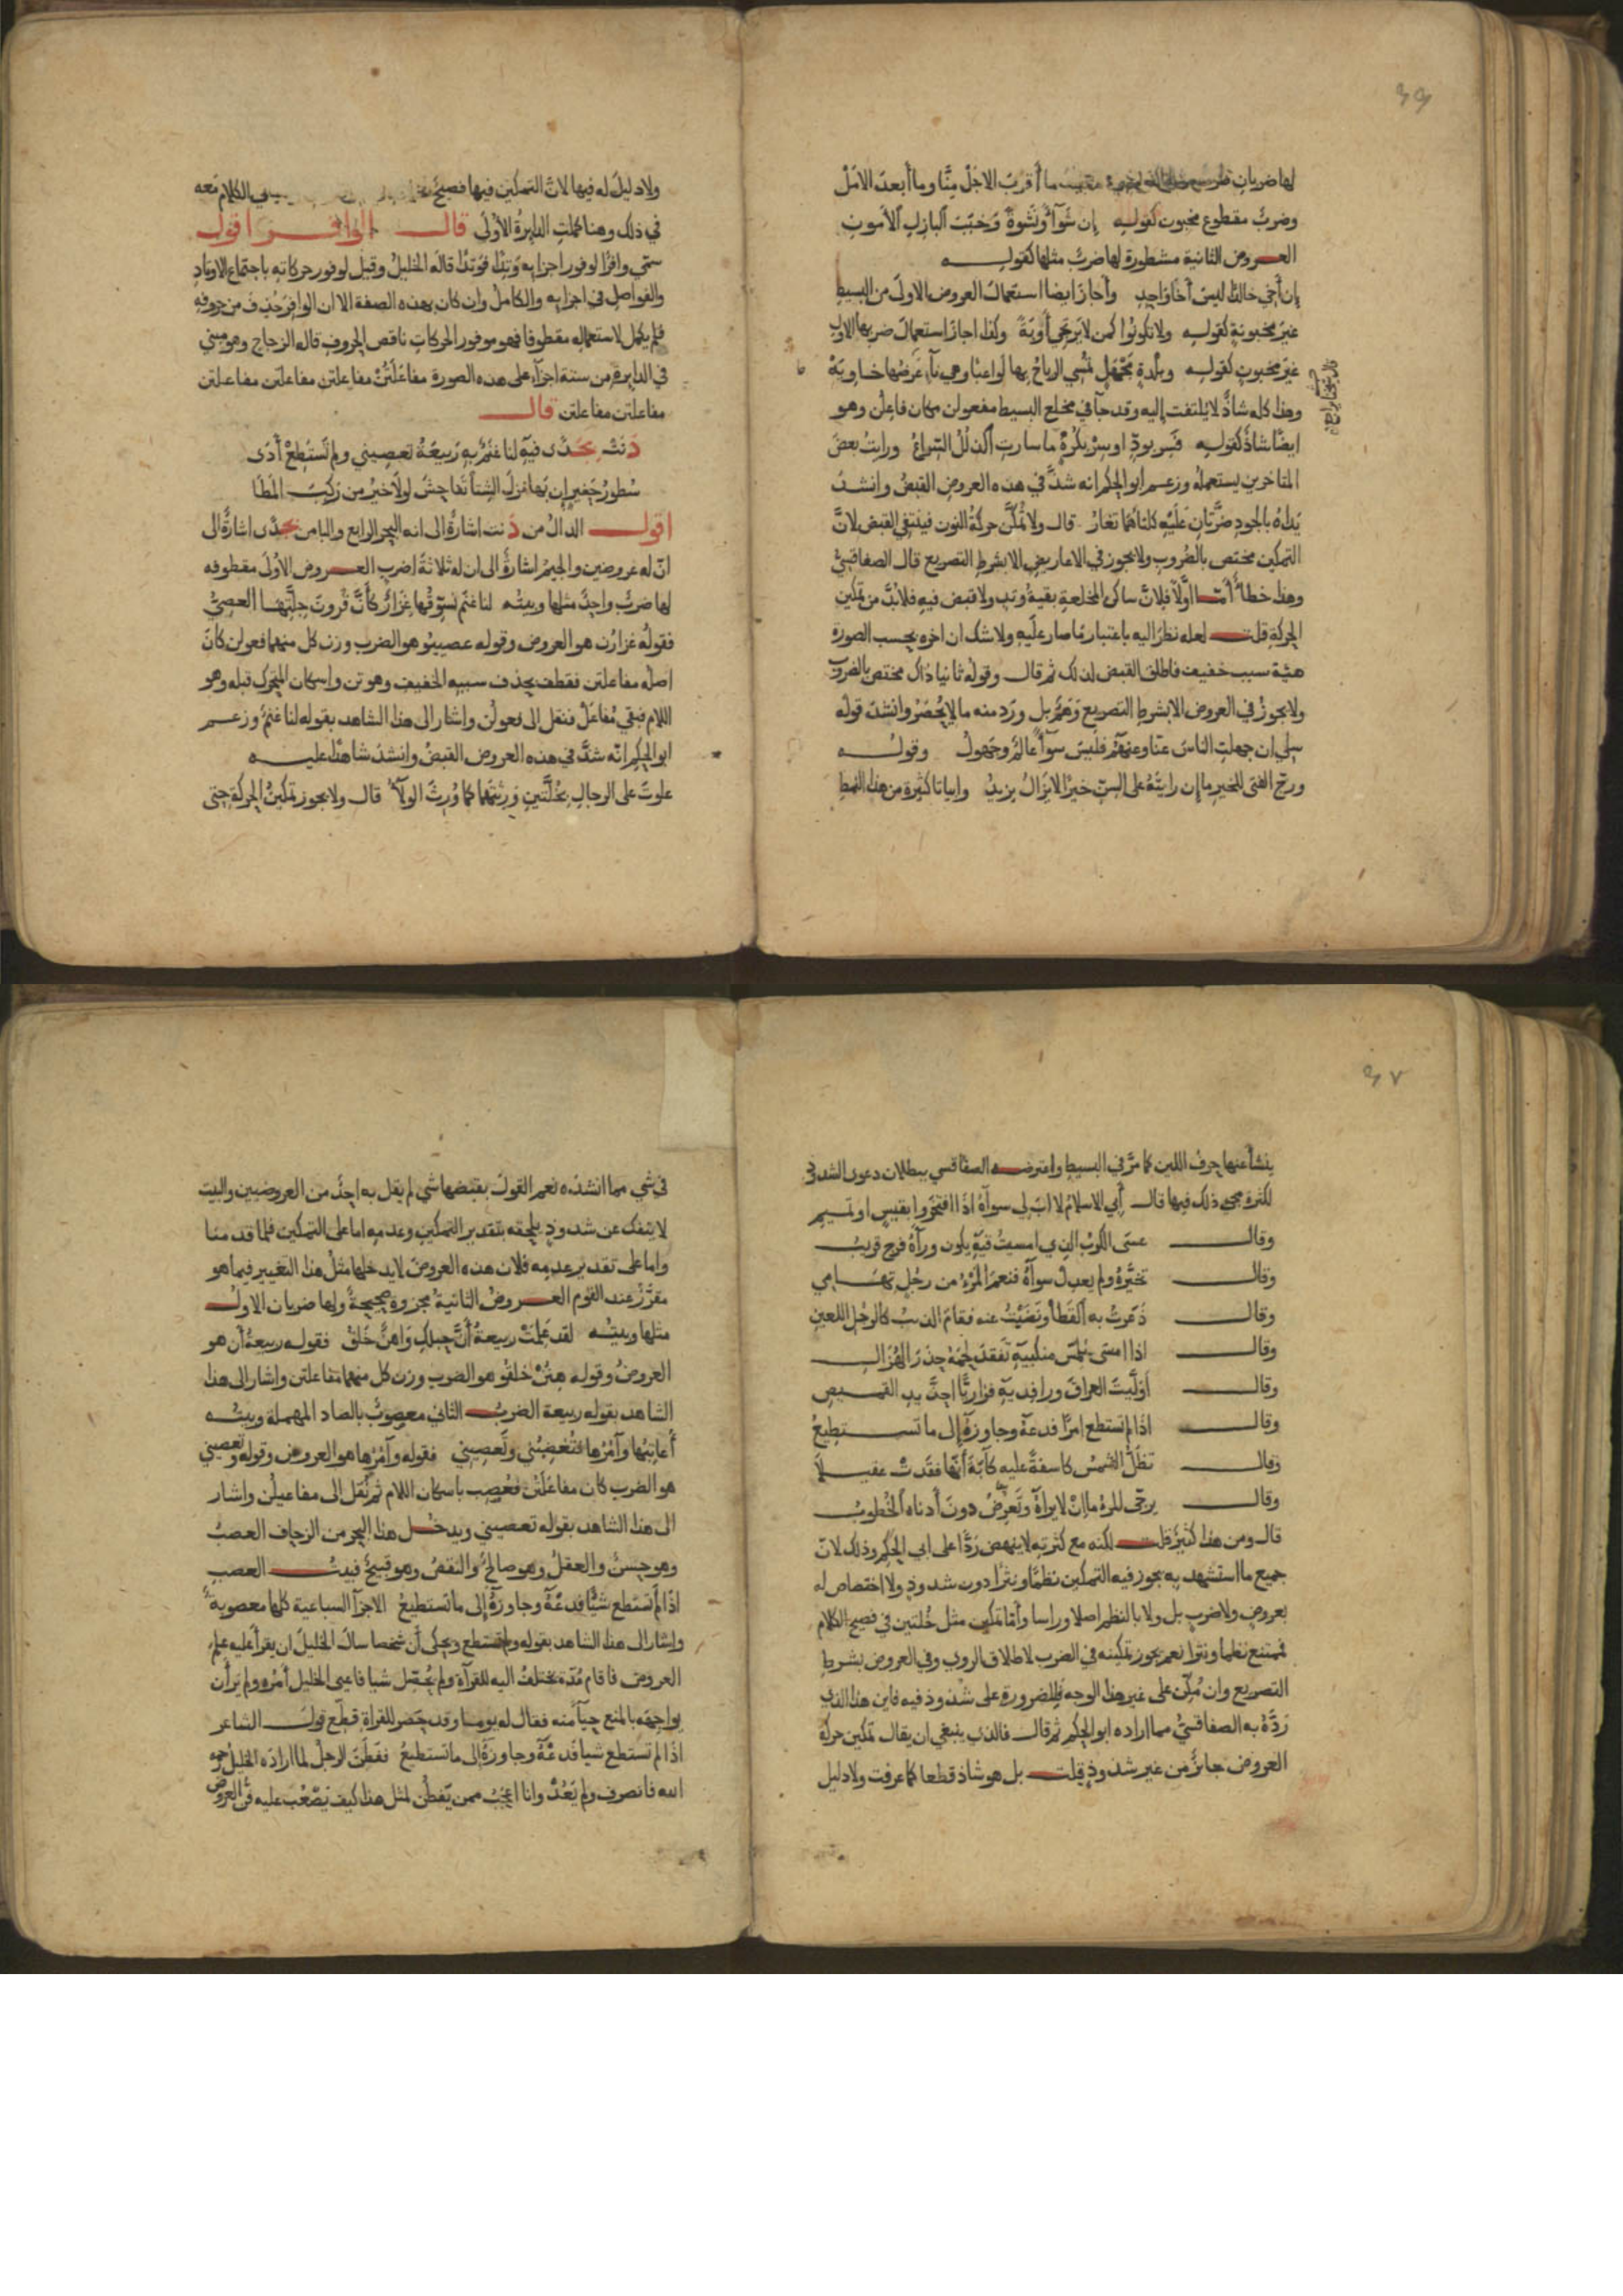 ٣٦
لها ضربان ما أقرب الاجل منّا وما أبعد الامل
وضرب مقطوع مخبون كقوله إن شوآء ونشوة وخبب البازل الأمون
العروض الثانية مشطورة لها ضرب مثلها كقوله
إن أخي خالدا ليس أخا واحد وأجاز ايضا استعمال العروض الاولى من البسيط
غير مخبونة كقوله ولا تكونوا كمن لا يرتجي أوبة وكذا اجاز استعمال ضربها الاول
غير مخبون كقوله وبلدة مجهل تمسي الرياح بها لواغبا وهي ناء عرضها خاوية
وهذا كله شاذ لا يلتفت إليه وقد جآ في مخلع البسيط مفعولن مكان فاعلن وهو
ايضا شاذ كقوله فسر بود او سر بكره ما سارت الذلل السراع ورايت بعض
المتاخرين يستعمله وزعم ابو الحكم انه شذ في هذه العروض القبض وانشد
يداه بالجود ضرتان عليه كلتاهما تغار قال ولا تمكن حركة النون فينتفي القبض لانّ
التمكين مختص بالضروب ولا يجوز في الاعاريض الا بشرط التصريع قال الصفاقسيّ
وهذا خطأ أما اوّلا فلانّ ساكن المخلعة بقية وتد ولا قبض فيه فلا بدّ من تمكين
الحركة قلت لعله نظر اليه باعتبار ما صار عليه ولا شك ان اخره بحسب الصورة
هيئة سبب خفيف فاطلق القبض لذلك ثم قال وقوله ثانيا ذاك مختص بالضروب
ولا يجوز في العروض الا بشرط التصريع وهم بل ورد منه ما لا يحصر وانشد قوله
سلي ان جهلت الناس عنا وعنهم فليس سوآء عالم وجهول وقوله
ورج الفتى للخير ما إن رايته على السن خيرا لا يزال يزيد وابياتا كثيرة من هذا النمط
ولا دليل له فيها لانّ التمكين فيها فصيح في الكلام معه
في ذلك وهنا كملت الدايرة الاولى قال الوافر اقول
سمي وافرا لوفور اجزايه وتدا فوتدا قاله الخليل وقيل لوفور حركاته باجتماع الاوتاد
والفواصل في اجزايه والكامل وان كان بهذه الصفة الا ان الوافر حذف من حروفه
فلم يكمل لاستعماله مقطوفا فهو موفور الحركات ناقص الحروف قاله الزجاج وهو مبني
في الدايرة من ستة اجزآء على هذه الصورة مفاعلتن مفاعلتن مفاعلتن مفاعلتن
مفاعلتن مفاعلتن قال
دنت بجدى فيه لنا غنم به ربيعة تعصيني ولم تستطع أذى
سطور حفير ان بها نزل الشتا تفاحش لولا خير من ركب المطا
اقول الدال من دنت اشارة الى انه البحر الرابع والبا من بجدى اشارة الى
انّ له عروضين والجيم اشارة الى ان له ثلاثة اضرب العروض الاولى مقطوفه
لها ضرب واحد مثلها وبيته لنا غنم نسوقها غزار كأنّ قرون جلتها العصيّ
فقوله غزارن هو العروض وقوله عصييو هو الضرب وزن كل منهما فعولن كان
اصله مفاعلتن فقطف بحذف سببه الخفيف وهو تن واسكان المتحرك قبله وهو
اللام فبقي مفاعل فنقل الى فعولن واشار الى هذا الشاهد بقوله لنا غنم وزعم
ابو الحكم انّه شذّ في هذه العروض القبض وانشد شاهدا عليه
علوت على الرجال بخلّتين ورثتهما كما ورث الولآء قال ولا يجوز تمكين الحركة حتى
٣٧
ينشأ عنها حرف اللين كما مرّ في البسيط واعترضه الصفاقسي ببطلان دعوى الشذوذ
لكثرة مجي ذلك فيها قال أبي الاسلام لا اب لي سوآه اذا افتخروا بقيس او تميم
وقال عسى الكرب الذي امسيت فيه يكون ورآه فرج قريب
وقال تخيره ولم يعدل سوآه فنعم المرء من رجل تهامي
وقال ذعرت به القطا ونفيت عنه مقام الذيب كالرجل اللعين
وقال اذا امسى يلمس منكبيه تفقد لحمه حذر الهزال
وقال اوليت العراق ورافديه فزاريّا احذّ يد القميص
وقال اذا لم تستطع امرا فدعه وجاوزه إلى ما تستطيع
وقال تظل الشمس كاسفة عليه كآبة أنها فقدت عقيلا
وقال يرجّى المرء ما إن لا يراه وتعرض دون أدناه الخطوب
قال ومن هذا كثير قلت لكنه مع كثرته لا ينهض ردّا على ابي الحكم وذلك لانّ
جميع ما استشهد به يجوز فيه التمكين نظما ونثرا دون شذوذ ولا اختصاص له
بعروض ولا ضرب بل ولا بالنظم اصلا وراسا وأما تمكين مثل خلتين في فصيح الكلام
فممتنع نظما ونثرا نعم يجوز تمكينه في الضرب لاطلاق الروي وفي العروض بشرط
التصريع وان مكّن على غير هذا الوجه فللضرورة على شذوذ فيه فاين هذا الذي
ردّه به الصفاقسيّ مما اراده ابو الحكم ثم قال فالذي ينبغي ان يقال تمكين حركة
العروض جائز من غير شذوذ قلت بل هو شاذ قطعا كما عرفت ولا دليل
في شي مما انشده نعم القول بقبضها شي لم يقل به احد من العروضيين والبيت
لا ينفك عن شذوذ يلحقه بتقدير التمكين وعدمه اما على التمكين فلما قدمنا
واما على تقدير عدمه فلان هذه العروض لا يدخلها مثل هذا التغيير فيما هو
مقرّر عند القوم العروض الثانية مجزوة صحيحة ولها ضربان الاول
مثلها وبيته لقد علمت ربيعة أنّ حبلك واهن خلق فقوله ربيعة أن هو
العروض وقوله هنن خلقو هو الضرب وزن كل منهما مفاعلتن واشار الى هذا
الشاهد بقوله ربيعة الضرب الثاني معصوب بالصاد المهملة وبيته
أعاتبها وآمرها فتغضبني وتعصيني فقوله وآمرها هو العروض وقوله وتعصيني
هو الضرب كان مفاعلتن فعصب باسكان اللام ثم نقل الى مفاعيلن واشار
الى هذا الشاهد بقوله تعصيني ويدخل هذا البحر من الزحاف العصب
وهو حسن والعقل وهو صالح والنقص وهو قبيح فبيت العصب
اذا لم تستطع شيئا فدعه وجاوزه إلى ما تستطيع الاجزآ السباعية كلها معصوبة
واشار الى هذا الشاهد بقوله ولم تستطع ويحكى أن شخصا سأل الخليل ان يقرأ عليه علم
العروض فاقام مدّة يختلف اليه للقرآة ولم يحصّل شيا فاعيى الخليل أمره ولم ير أن
يواجهه بالمنع حيآء منه فقال له يوما وقد حضر للقراة قطّع قول الشاعر
اذا لم تستطع شيا فدعه وجاوزه إلى ما تستطيع ففطن الرجل لما اراده الخليل رحمه
الله فانصرف ولم يعد وانا اعجب ممن يفطن لمثل هذا كيف يصعب عليه فن العروض